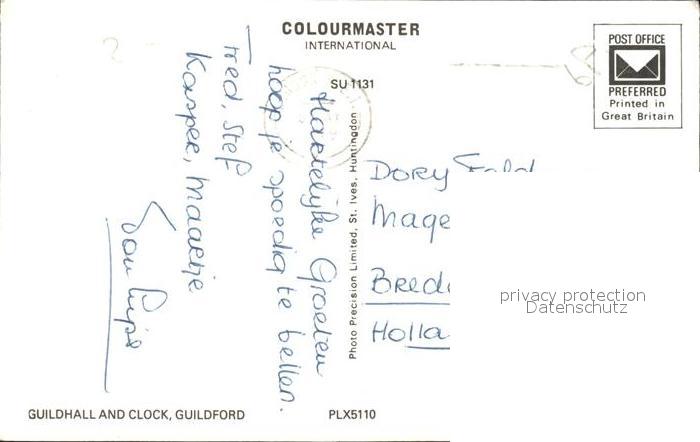 COLOURMASTER
INTERNATIONAL
SU 1131
POST OFFICE
PREFERRED
Printed in
Great Britain
Hartelijke Groeten
hoop je spoedig te bellen.
Fred, Stef
Kasper, Maartje
Photo Precision Limited, St. Ives, Huntingdon
Dory
Mage
Bred
Holla
privacy protection
Datenschutz
GUILDHALL AND CLOCK, GUILDFORD
PLX5110